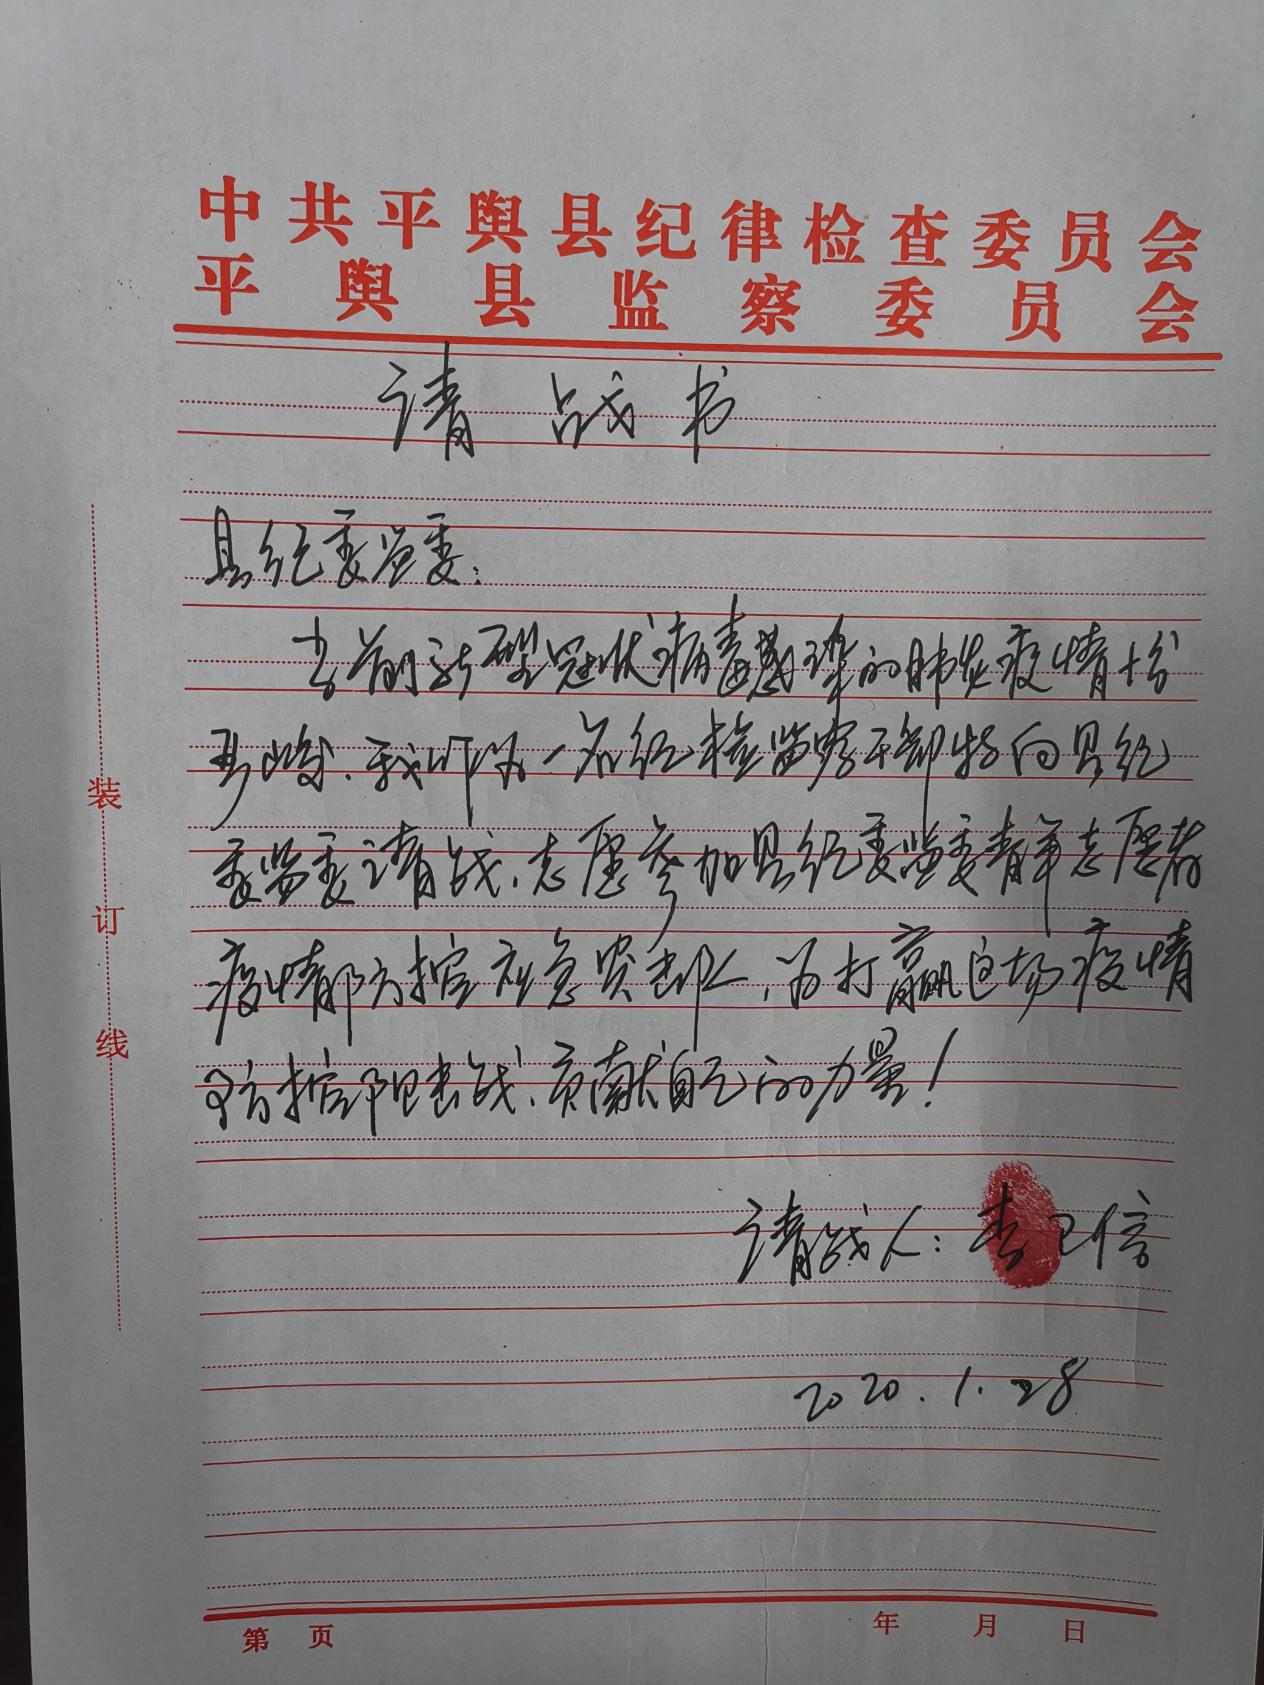 中共平舆县纪律检查委员会
平舆县监察委员会
请战书
县纪委监委：
当前新型冠状病毒感染的肺炎疫情形
势严峻，我作为一名纪检监察干部特向县纪
委监委请战，志愿参加县纪委监委青年志愿者
疫情防控应急突击队，为打赢这场疫情
防控阻击战，贡献自己的力量！
请战人：李卫信
2020.1.28
装
订
线
第 页
年 月 日